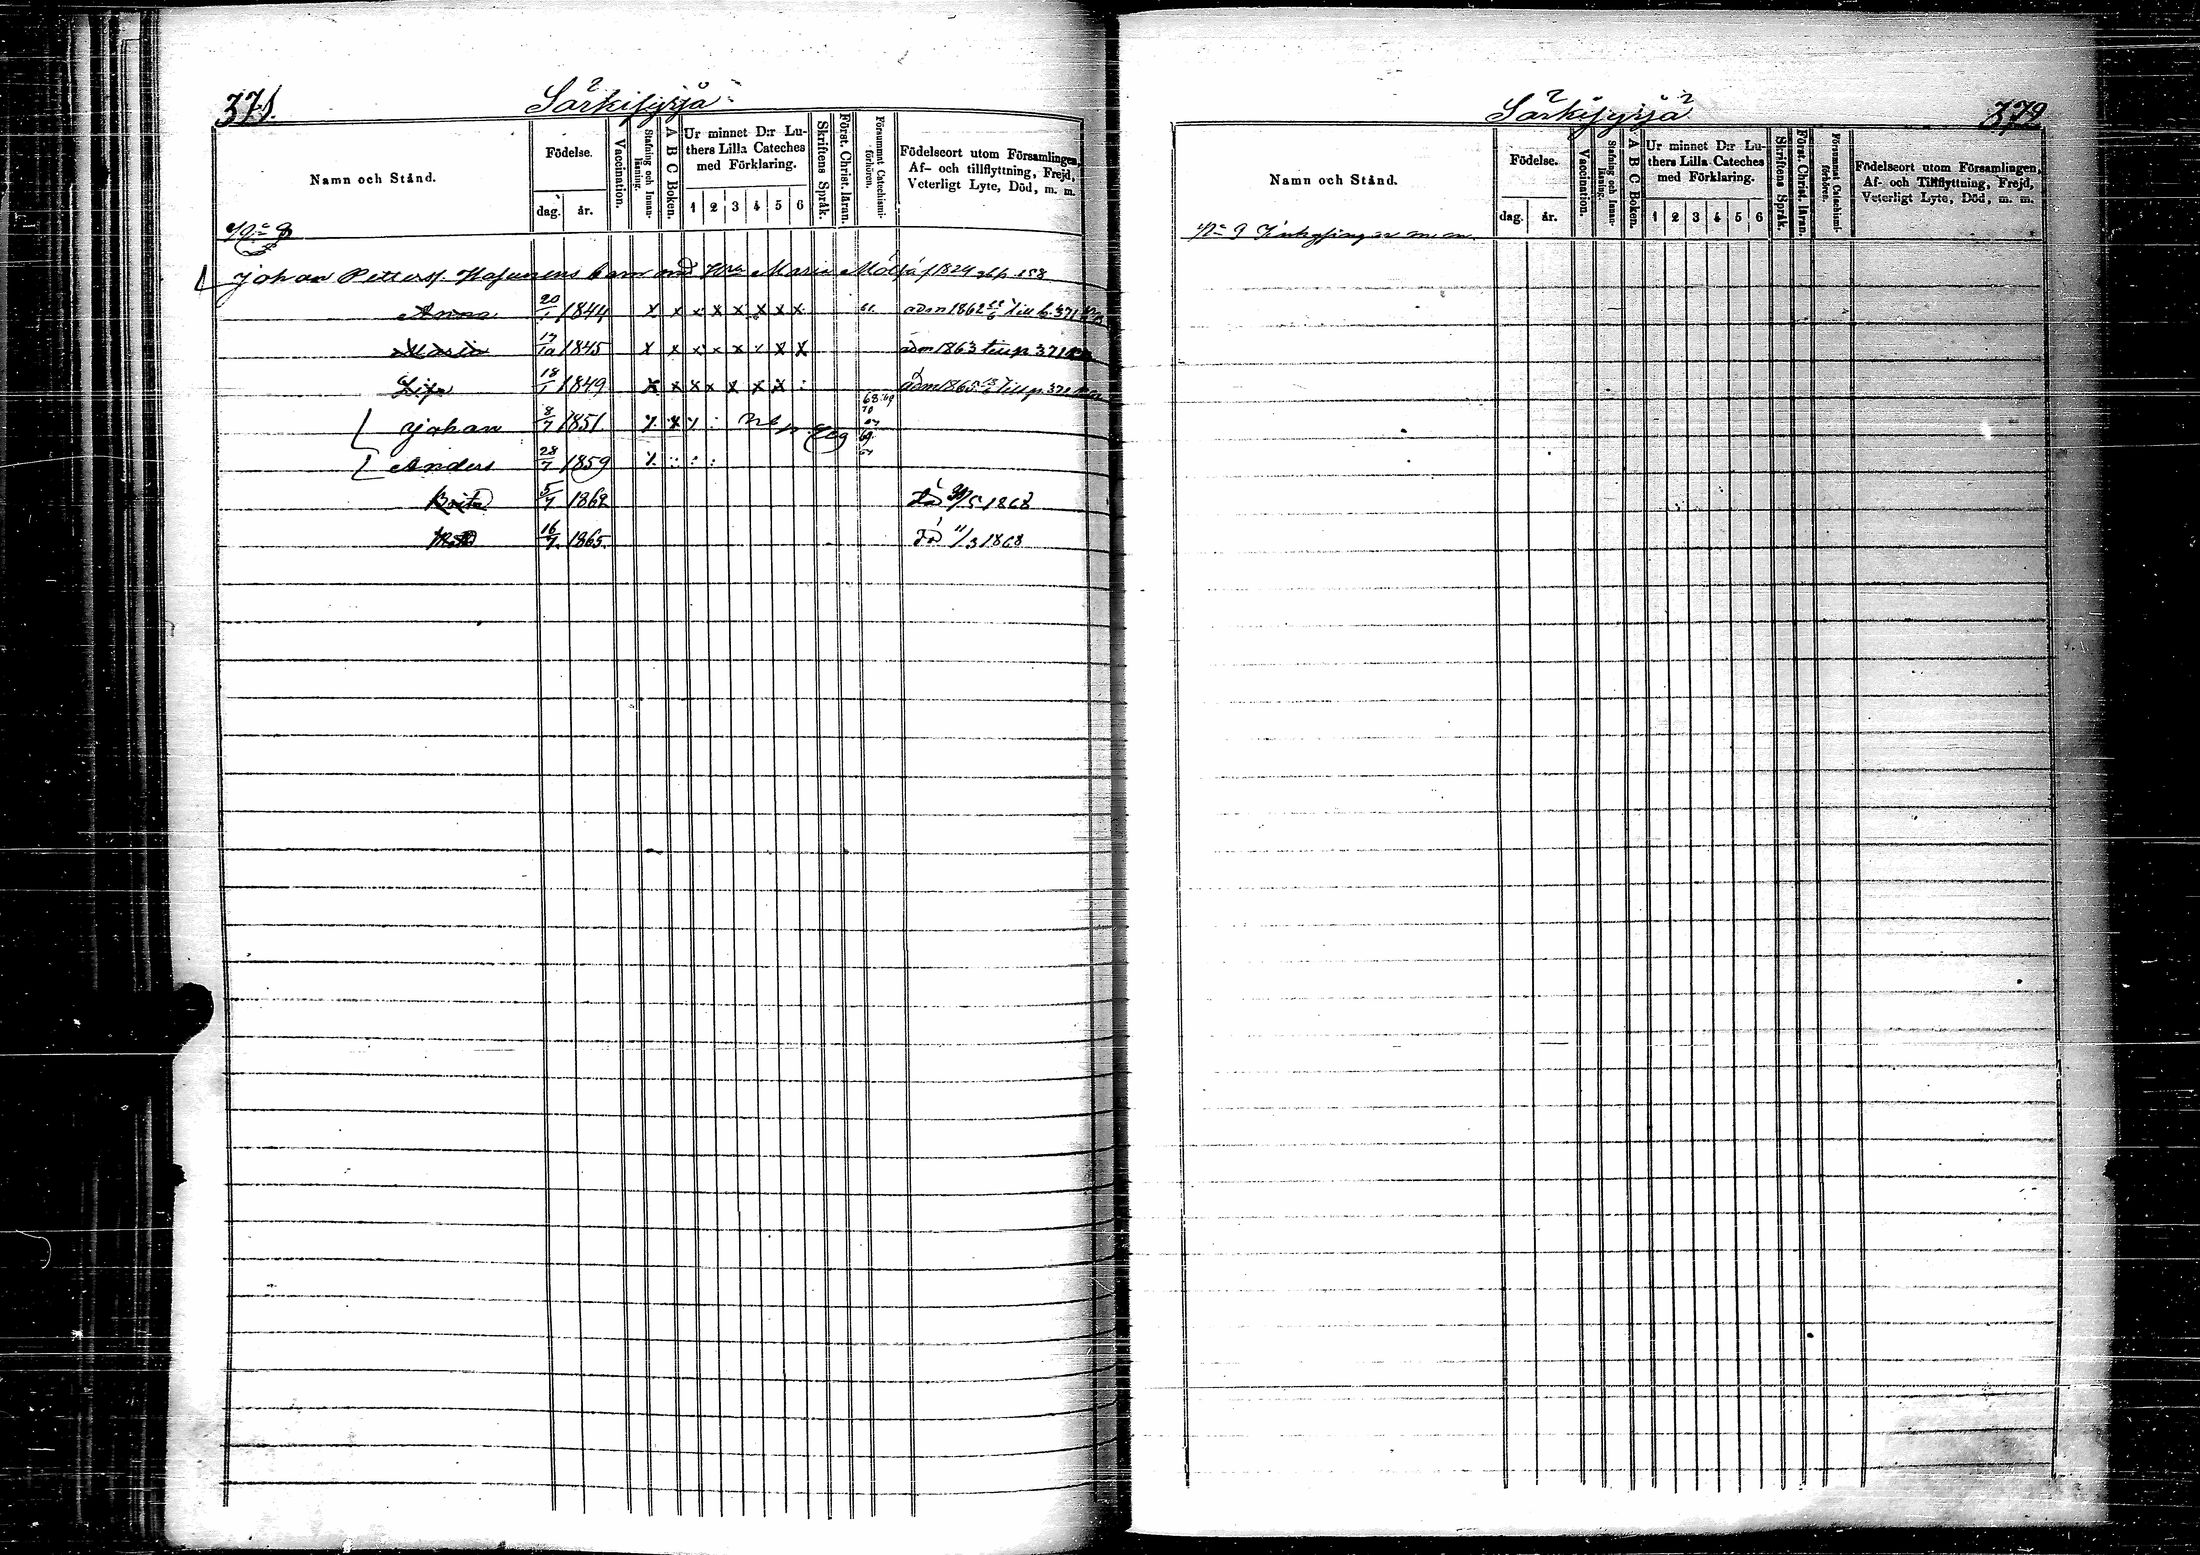 371.
Särkijyrjä
Namn och Stånd.
Födelse.
dag. år.
Vaccination.
Stafning och Innanläsning.
A B C Boken.
Ur minnet D:r Luthers Lilla Cateches med Förklaring.
1 2 3 4 5 6
Skriftens Språk.
Först. Christ. läran.
Försummat Catechismiförhören.
Födelseort utom Församlingen,
Af- och tillflyttning, Frejd,
Veterligt Lyte, Död, m. m.
No 8
Johan Petterss. barn med Maria f 1824 158
Anna 20/1 1844 x x x x x x x x 61. adm 1862 Till p. 371
Maria 17/10 1845 x x x x x x x x adm 1863 till p 371
Lisa 18/1 1849 x x x x x x x : adm 1865 Till p. 371
68.69
70
Johan 8/7 1851. x x x :
69.
Anders 28/7 1859 x : : :
Brita 5/7 1862 Död 30/5 1868
16/7 1865. Död 11/3 1868
Särkijyrjä
372
Namn och Stånd.
Födelse.
dag. år.
Vaccination.
Stafning och Innanläsning.
A B C Boken.
Ur minnet D:r Luthers Lilla Cateches med Förklaring.
1 2 3 4 5 6
Skriftens Språk.
Först. Christ. läran.
Försummat Catechismiförhören.
Födelseort utom Församlingen,
Af- och Tillflyttning, Frejd,
Veterligt Lyte, Död, m. m.
No 9 Inhysingar m. m.